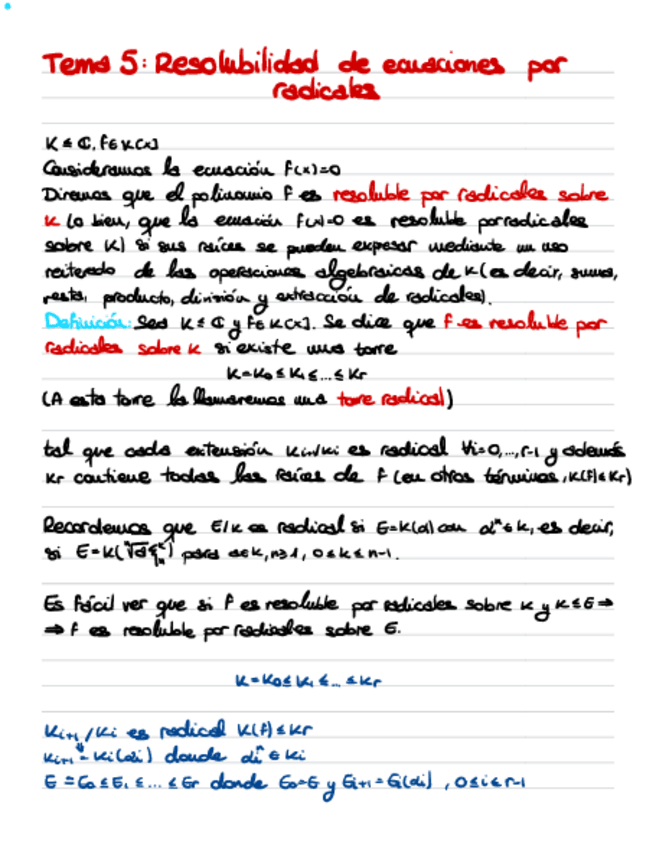 Tema 5: Resolubilidad de ecuaciones por
radicales
K ≤ ℂ, f ∈ K[x]
Consideramos la ecuación f(x)=0
Diremos que el polinomio f es resoluble por radicales sobre
K (o bien, que la ecuación f(x)=0 es resoluble por radicales
sobre K) si sus raíces se pueden expresar mediante un uso
reiterado de las operaciones algebraicas de K (es decir, suma,
resta, producto, división y extracción de radicales).
Definición: Sea K ≤ ℂ y f ∈ K[x]. Se dice que f es resoluble por
radicales sobre K si existe una torre
K=K₀ ≤ K₁ ≤ ... ≤ Kr
(A esta torre la llamaremos una torre radical)
tal que cada extensión Ki+1/Ki es radical ∀i=0,...,r-1 y además
Kr contiene todas las raíces de f (en otros términos, K(f) ≤ Kr)
Recordemos que E/K es radical si E=K(α) con αⁿ ∈ K, es decir,
si E=K(ⁿ√a ξₙᵏ) para a∈K, n≥1, 0≤k≤n-1.
Es fácil ver que si f es resoluble por radicales sobre K y K≤E ⇒
⇒ f es resoluble por radicales sobre E.
K=K₀ ≤ K₁ ≤ ... ≤ Kr
Ki+1/Ki es radical K(f) ≤ Kr
⇓
Ki+1 = Ki(αi) donde αiⁿ ∈ Ki
E = E₀ ≤ E₁ ≤ ... ≤ Er donde E₀=E y Ei+1=Ei(αi), 0≤i≤r-1